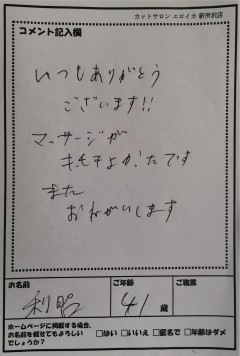 カットサロン エロイカ 新所沢店
コメント記入欄
いつもありがとう
ございます!!
マッサージが
きもちよかたです
また
おねがいします
お名前
ご年齢
ご職業
利昭
41歳
ホームページに掲載する場合、
お名前を載せてもよろしい
でしょうか?
□はい □いいえ □匿名で □年齢はダメ